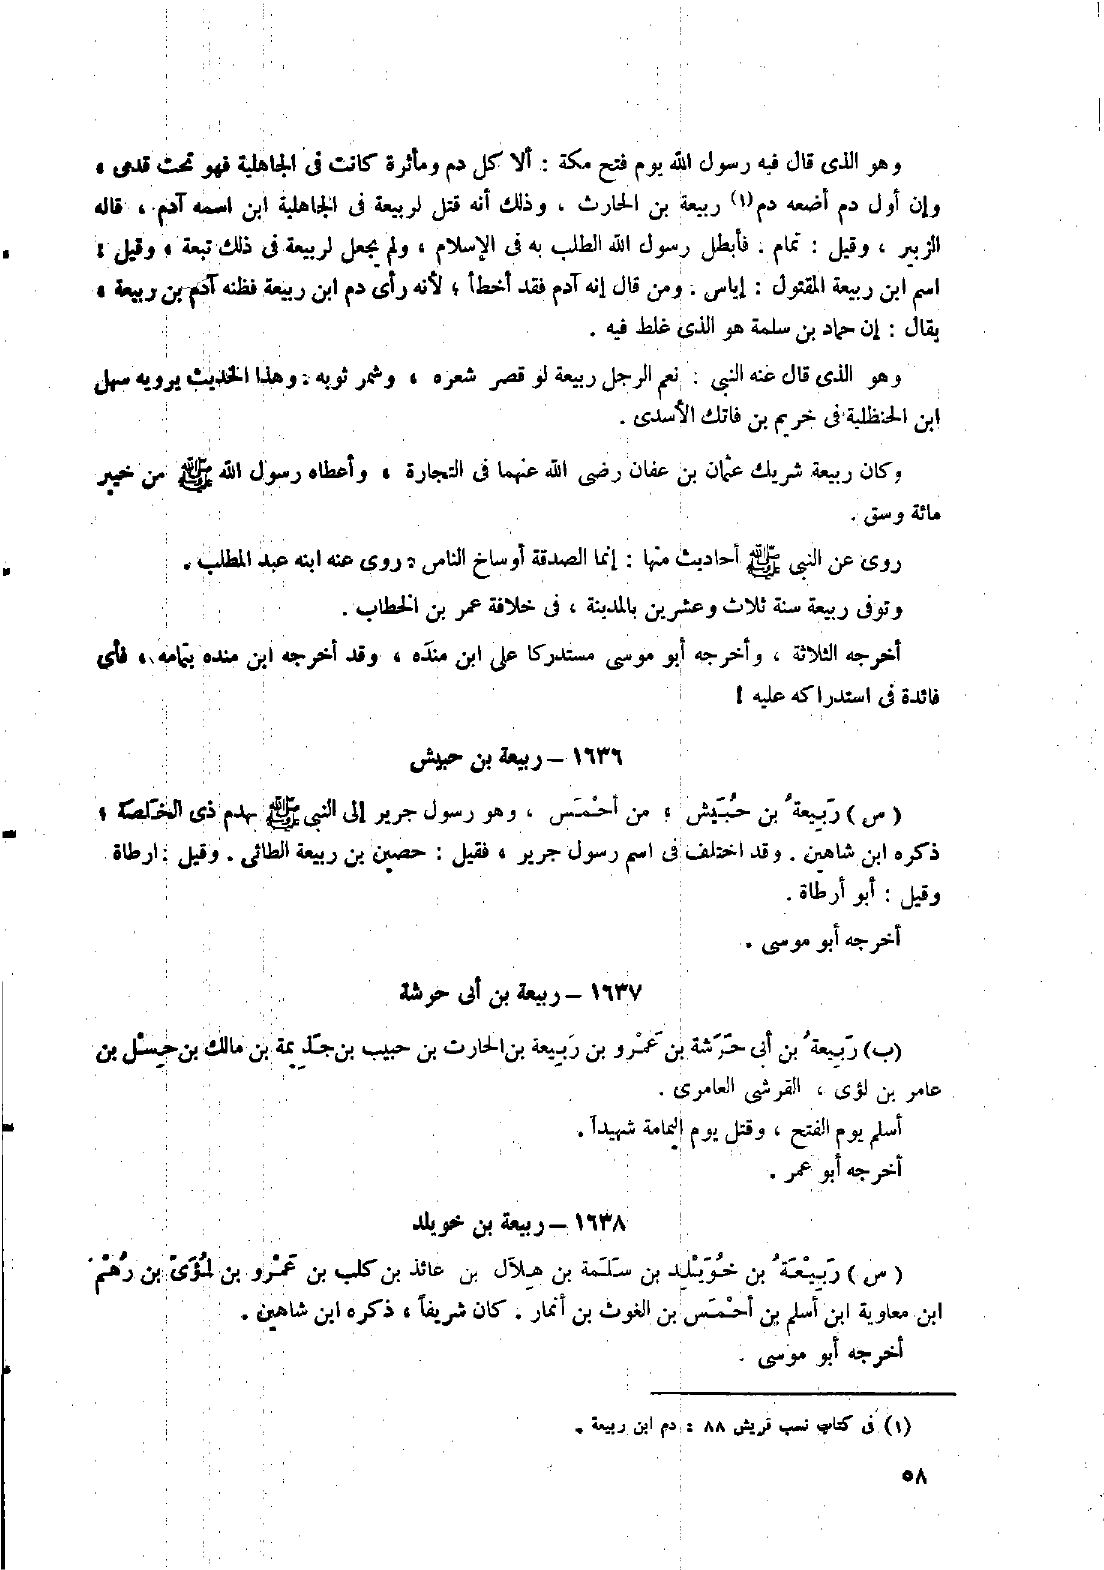 وهو الذى قال فيه رسول الله يوم فتح مكة : ألا كل دم ومأثرة كانت فى الجاهلية فهو تحت قدمى ،
وإن أول دم أضعه دم(١) ربيعة بن الحارث ، وذلك أنه قتل لربيعة فى الجاهلية ابن اسمه آدم ، قاله
الزبير ، وقيل : تمام . فأبطل رسول الله الطلب به فى الإسلام ، ولم يجعل لربيعة فى ذلك تبعة ، وقيل :
اسم ابن ربيعة المقتول : إياس . ومن قال إنه آدم فقد أخطأ ؛ لأنه رأى دم ابن ربيعة فظنه آدم بن ربيعة ،
يقال : إن حماد بن سلمة هو الذى غلط فيه .
وهو الذى قال عنه النبى : نعم الرجل ربيعة لو قصر شعره ، وشمر ثوبه . وهذا الحديث يرويه سهل
ابن الحنظلية فى خريم بن فاتك الأسدى .
وكان ربيعة شريك عثمان بن عفان رضى الله عنهما فى التجارة ، وأعطاه رسول الله ﷺ من خيبر
مائة وسق .
روى عن النبى ﷺ أحاديث منها : إنما الصدقة أوساخ الناس . روى عنه ابنه عبد المطلب .
وتوفى ربيعة سنة ثلاث وعشرين بالمدينة ، فى خلافة عمر بن الخطاب .
أخرجه الثلاثة ، وأخرجه أبو موسى مستدركا على ابن منده ، وقد أخرجه ابن منده بتمامه ، فأى
فائدة فى استدراكه عليه !
١٦٣٦ – ربيعة بن حبيش
( س ) رَبِيعةُ بن حُبَيش ، من أحْمَس ، وهو رسول جرير إلى النبى ﷺ بهدم ذى الخَلَصَة ،
ذكره ابن شاهين . وقد اختلف فى اسم رسول جرير ، فقيل : حصين بن ربيعة الطائى . وقيل : ارطاة
وقيل : أبو أرطاة .
أخرجه أبو موسى .
١٦٣٧ – ربيعة بن أبى خرشة
(ب) رَبِيعةُ بن أبى خَرَشَة بن عَمْرو بن رَبِيعة بن الحارث بن حبيب بن جَذِيمة بن مالك بن حِسْل بن
عامر بن لؤى ، القرشى العامرى .
أسلم يوم الفتح ، وقتل يوم اليمامة شهيداً .
أخرجه أبو عمر .
١٦٣٨ – ربيعة بن خويلد
( س ) رَبِيْعَةُ بن خُوَيْلِد بن سَلَمة بن هِلَال بن عائذ بن كلب بن عَمْرو بن لُؤَىّ بن رُهْم
ابن معاوية ابن أسلم بن أحْمَس بن الغوث بن أنمار . كان شريفاً ، ذكره ابن شاهين .
أخرجه أبو موسى .
(١) فى كتاب نسب قريش ٨٨ : دم ابن ربيعة .
٥٨